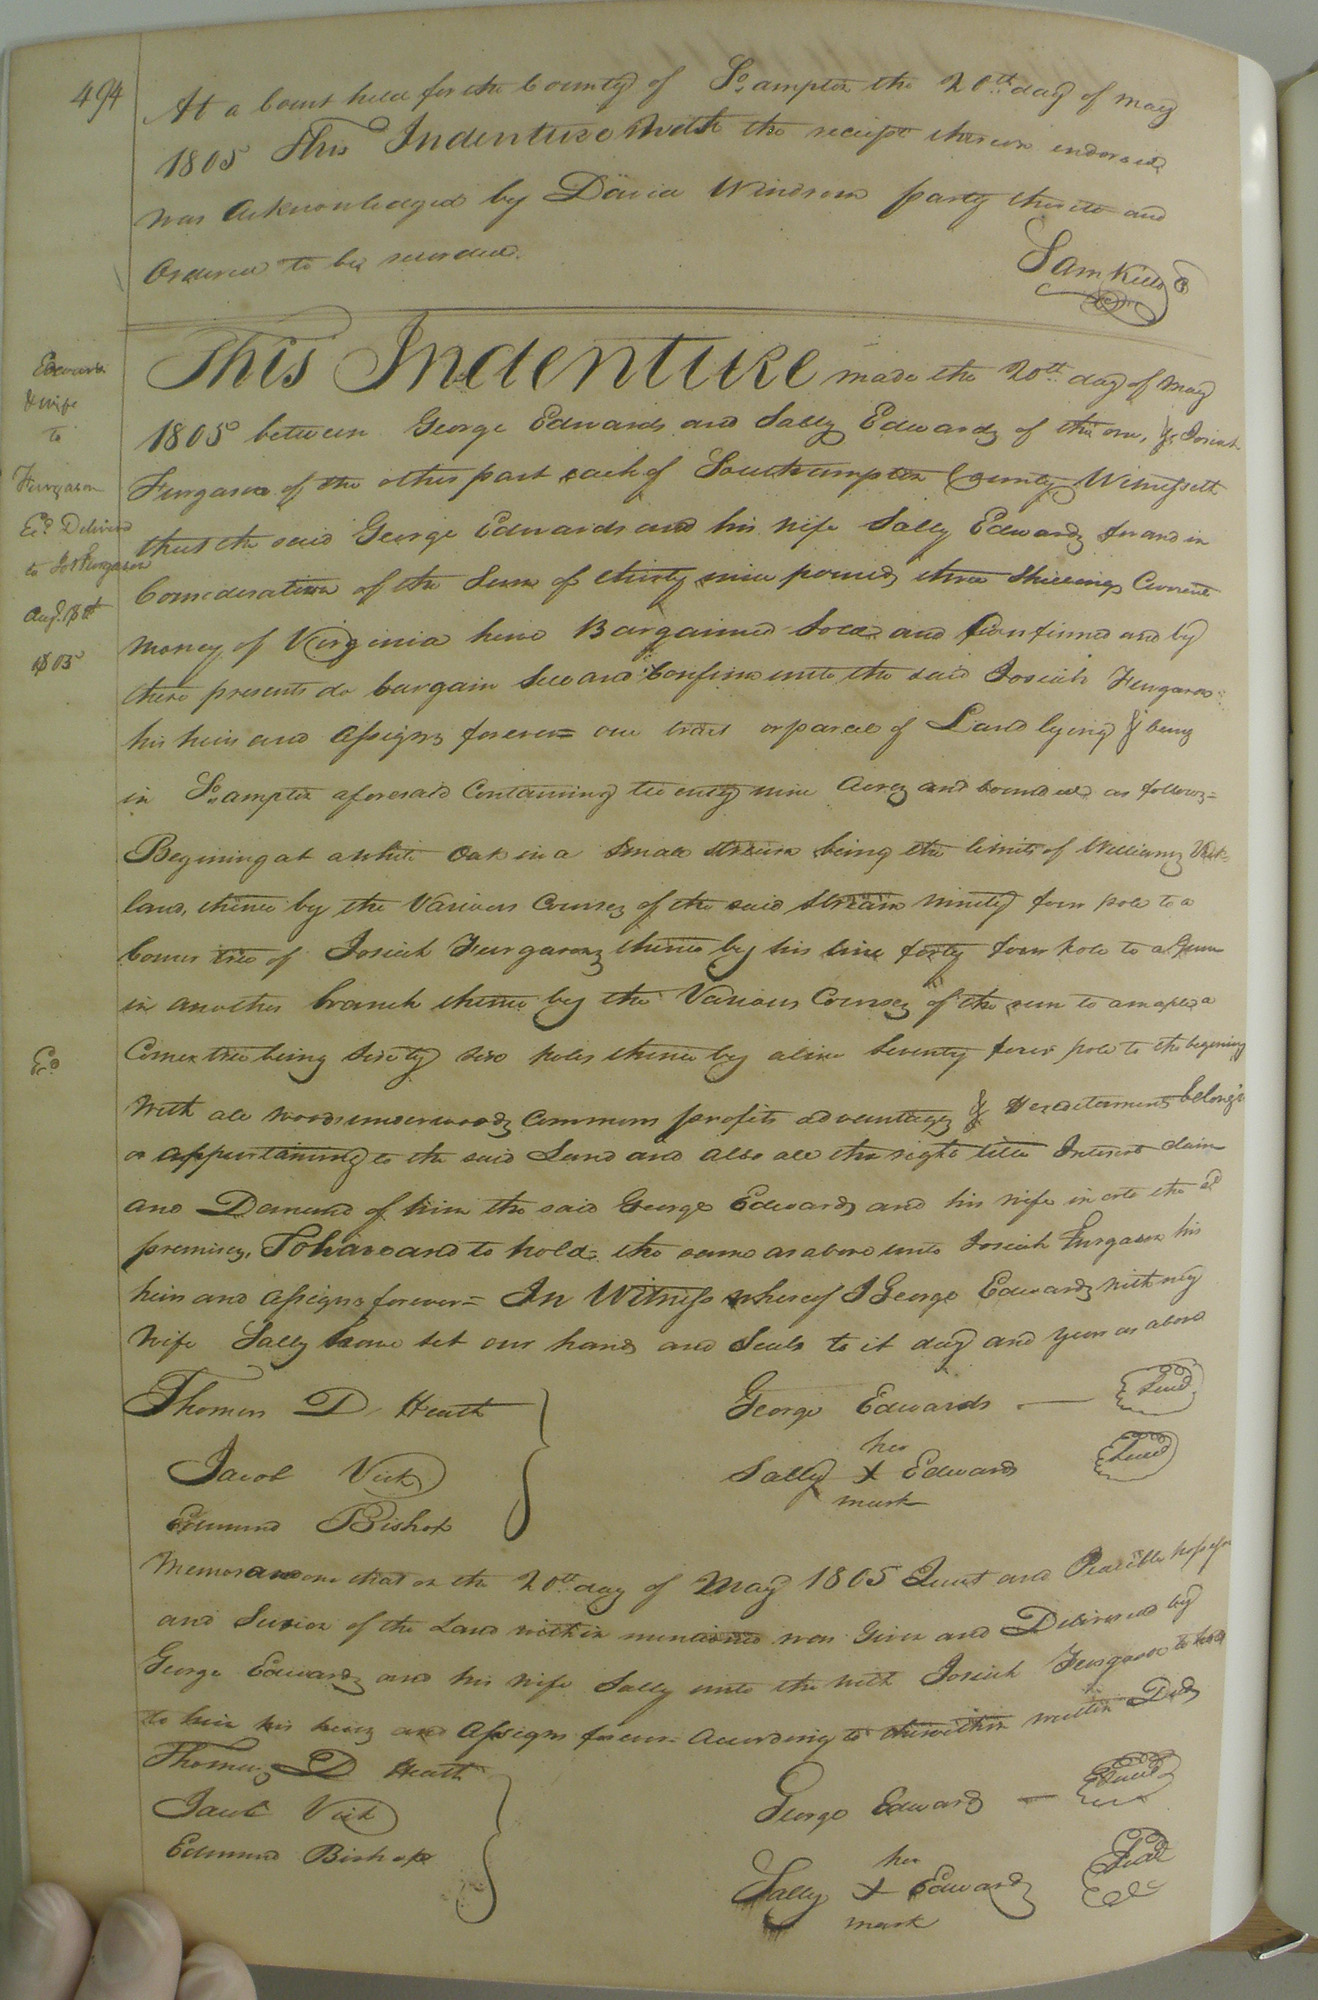 494
At a Court held for the County of So.ampton the 20th day of May
1805 This Indenture with the receipt thereon endorsed
was Acknowledged by David Windsom party thereto and
Ordered to be recorded.
Sam Kello C
Edwards
& wife
to
Furgason
Ed. Deliverd
to Jos Furgason
Aug. 18th
1805
This Indenture made the 20th day of May
1805 between George Edwards and Sally Edwards of the one, & Josiah
Furgason of the other part each of Southampton County Witnesseth
that the said George Edwards and his wife Sally Edwards for and in
Consideration of the Sum of thirty nine pounds three Shillings Current
money of Virginia have Bargained Sold and Confirmed and by
these presents do bargain Sell and Confirm unto the said Josiah Furgason
his heirs and Assigns forever= one tract or parcel of Land lying & being
in So.ampton aforesaid Containing twenty nine Acres and bounded as follows=
Begining at a white Oak in a Small stream being the limits of Williams Vick
land, thence by the Various Courses of the said stream ninety four pole to a
Corner tree of Josiah Furgasons thence by his line forty four pole to a Gum
in another branch thence by the Various Courses of the run to a maple a
Corner tree being Sixty Six poles thence by a line Seventy four pole to the begening
Ed.
With all woods underwoods Commons profits advantages & Hereditaments belong'g
or appertaining to the said Land and also all the right title Interest claim
and Demand of him the said George Edwards and his wife in & to the sd
premises, To have and to hold= the same as above unto Josiah Furgason his
heirs and Assigns forever= In Witness whereof I George Edwards with my
Wife Sally have set our hands and Seals to it day and year as above
Thomas D. Heath
George Edwards — Seal
her
Jacob Vick
Sally X Edwards Seal
mark
Edmund Bishop
Memorandom that on the 20th day of May 1805 Quiet and Peacible possesion
and Seision of the Land within mentioned was Given and Delivered by
George Edwards and his wife Sally unto the with Josiah Furgason to hold
to him his heirs and Assigns forever= According to the within written Deed
Thomas D Heath
Jacob Vick
George Edwards — Seal
Edmund Bishop
her
Sally X Edwards Seal
mark